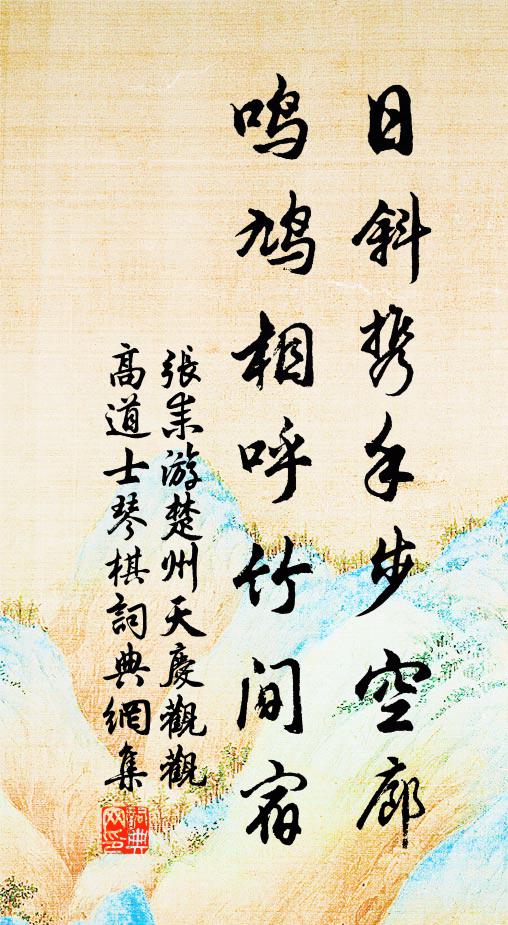 日斜携手步空廊
鸣鸠相呼竹间宿
張耒游楚州天慶觀觀
高道士琴棋詞典網集